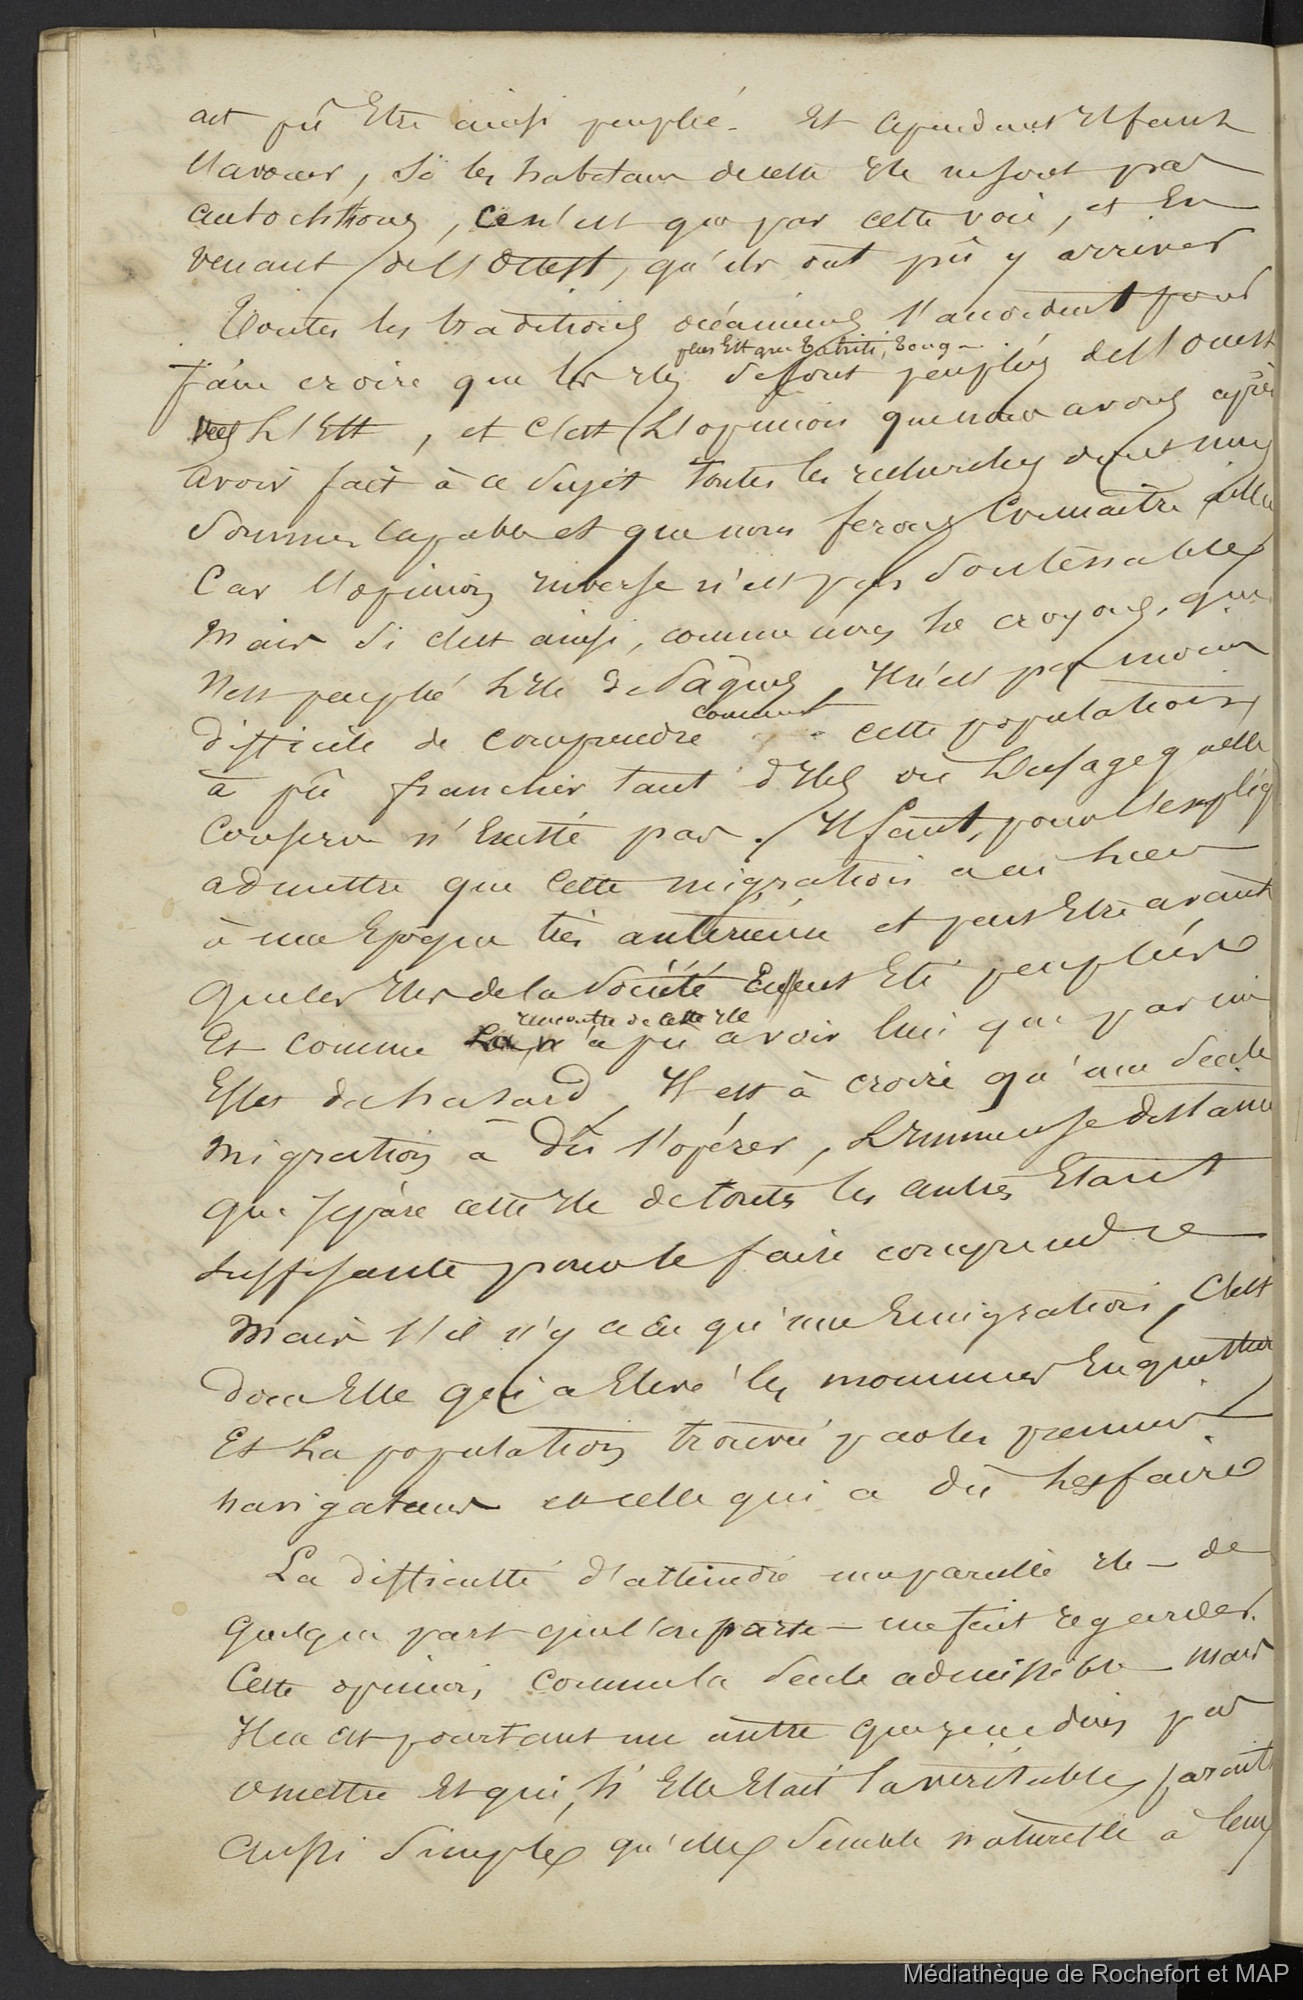 ait pû Etre ainsi peuplée. Et cependant Il faut
l'avouer, Si les habitans de cette Ile ne sont pas
autochthones, ce n'est que par cette voie, et En
venant de l'Ouest, qu'ils ont pû y arriver
Toutes les traditions océaniennes s'accordent pour
plus Est que Tahiti, Tonga
faire croire que les Iles se sont peuplées de l'ouest
vers L'Est, et c'est L'opinion que nous avons après
avoir fait à ce Sujet toutes les recherches dont nous
Sommes capable et que nous ferons Connaître
Car l'opinion inverse n'est pas Soutenable
Mais Si c'est ainsi, comme nous le croyons, que
s'est peuplé L'Ile de Pâques, Il n'est pas moins
comment
difficile de comprendre cette population
à pû franchir tant d'Iles où L'usage qu'elle
Conserva n'Existe pas. Il faut, pour l'expliq
admettre que cette migration a eu lieu
à une Epoque très antérieure et peut Etre avant
que les Iles de la Société Eussent Eté peuplées
rencontre de cette Ile
Et comme La n'a pu avoir lieu que par un
Effet du hasard, Il est à croire qu'une Seule
migration à Dû s'opérer, L'Immense distance
qui sépare cette Ile de toutes les autres Etant
suffisante pour le faire comprendre
Mais s'il n'y a eu qu'une Emigration, C'est
donc Elle qui a Elevé les monumens En question
Et La population trouvée par les premiers
navigateurs est celle qui a dû les faire
La difficulté d'atteindre une pareille Ile - de
quelque part que l'on parte - me fait regarder
Cette opinion comme la Seule admissible - mais
Il en est pourtant une autre que je ne dois pas
omettre Et qui, si Elle Etait la véritable, paroit
aussi Simple qu'elle Semble naturelle à leurs
Médiathèque de Rochefort et MAP